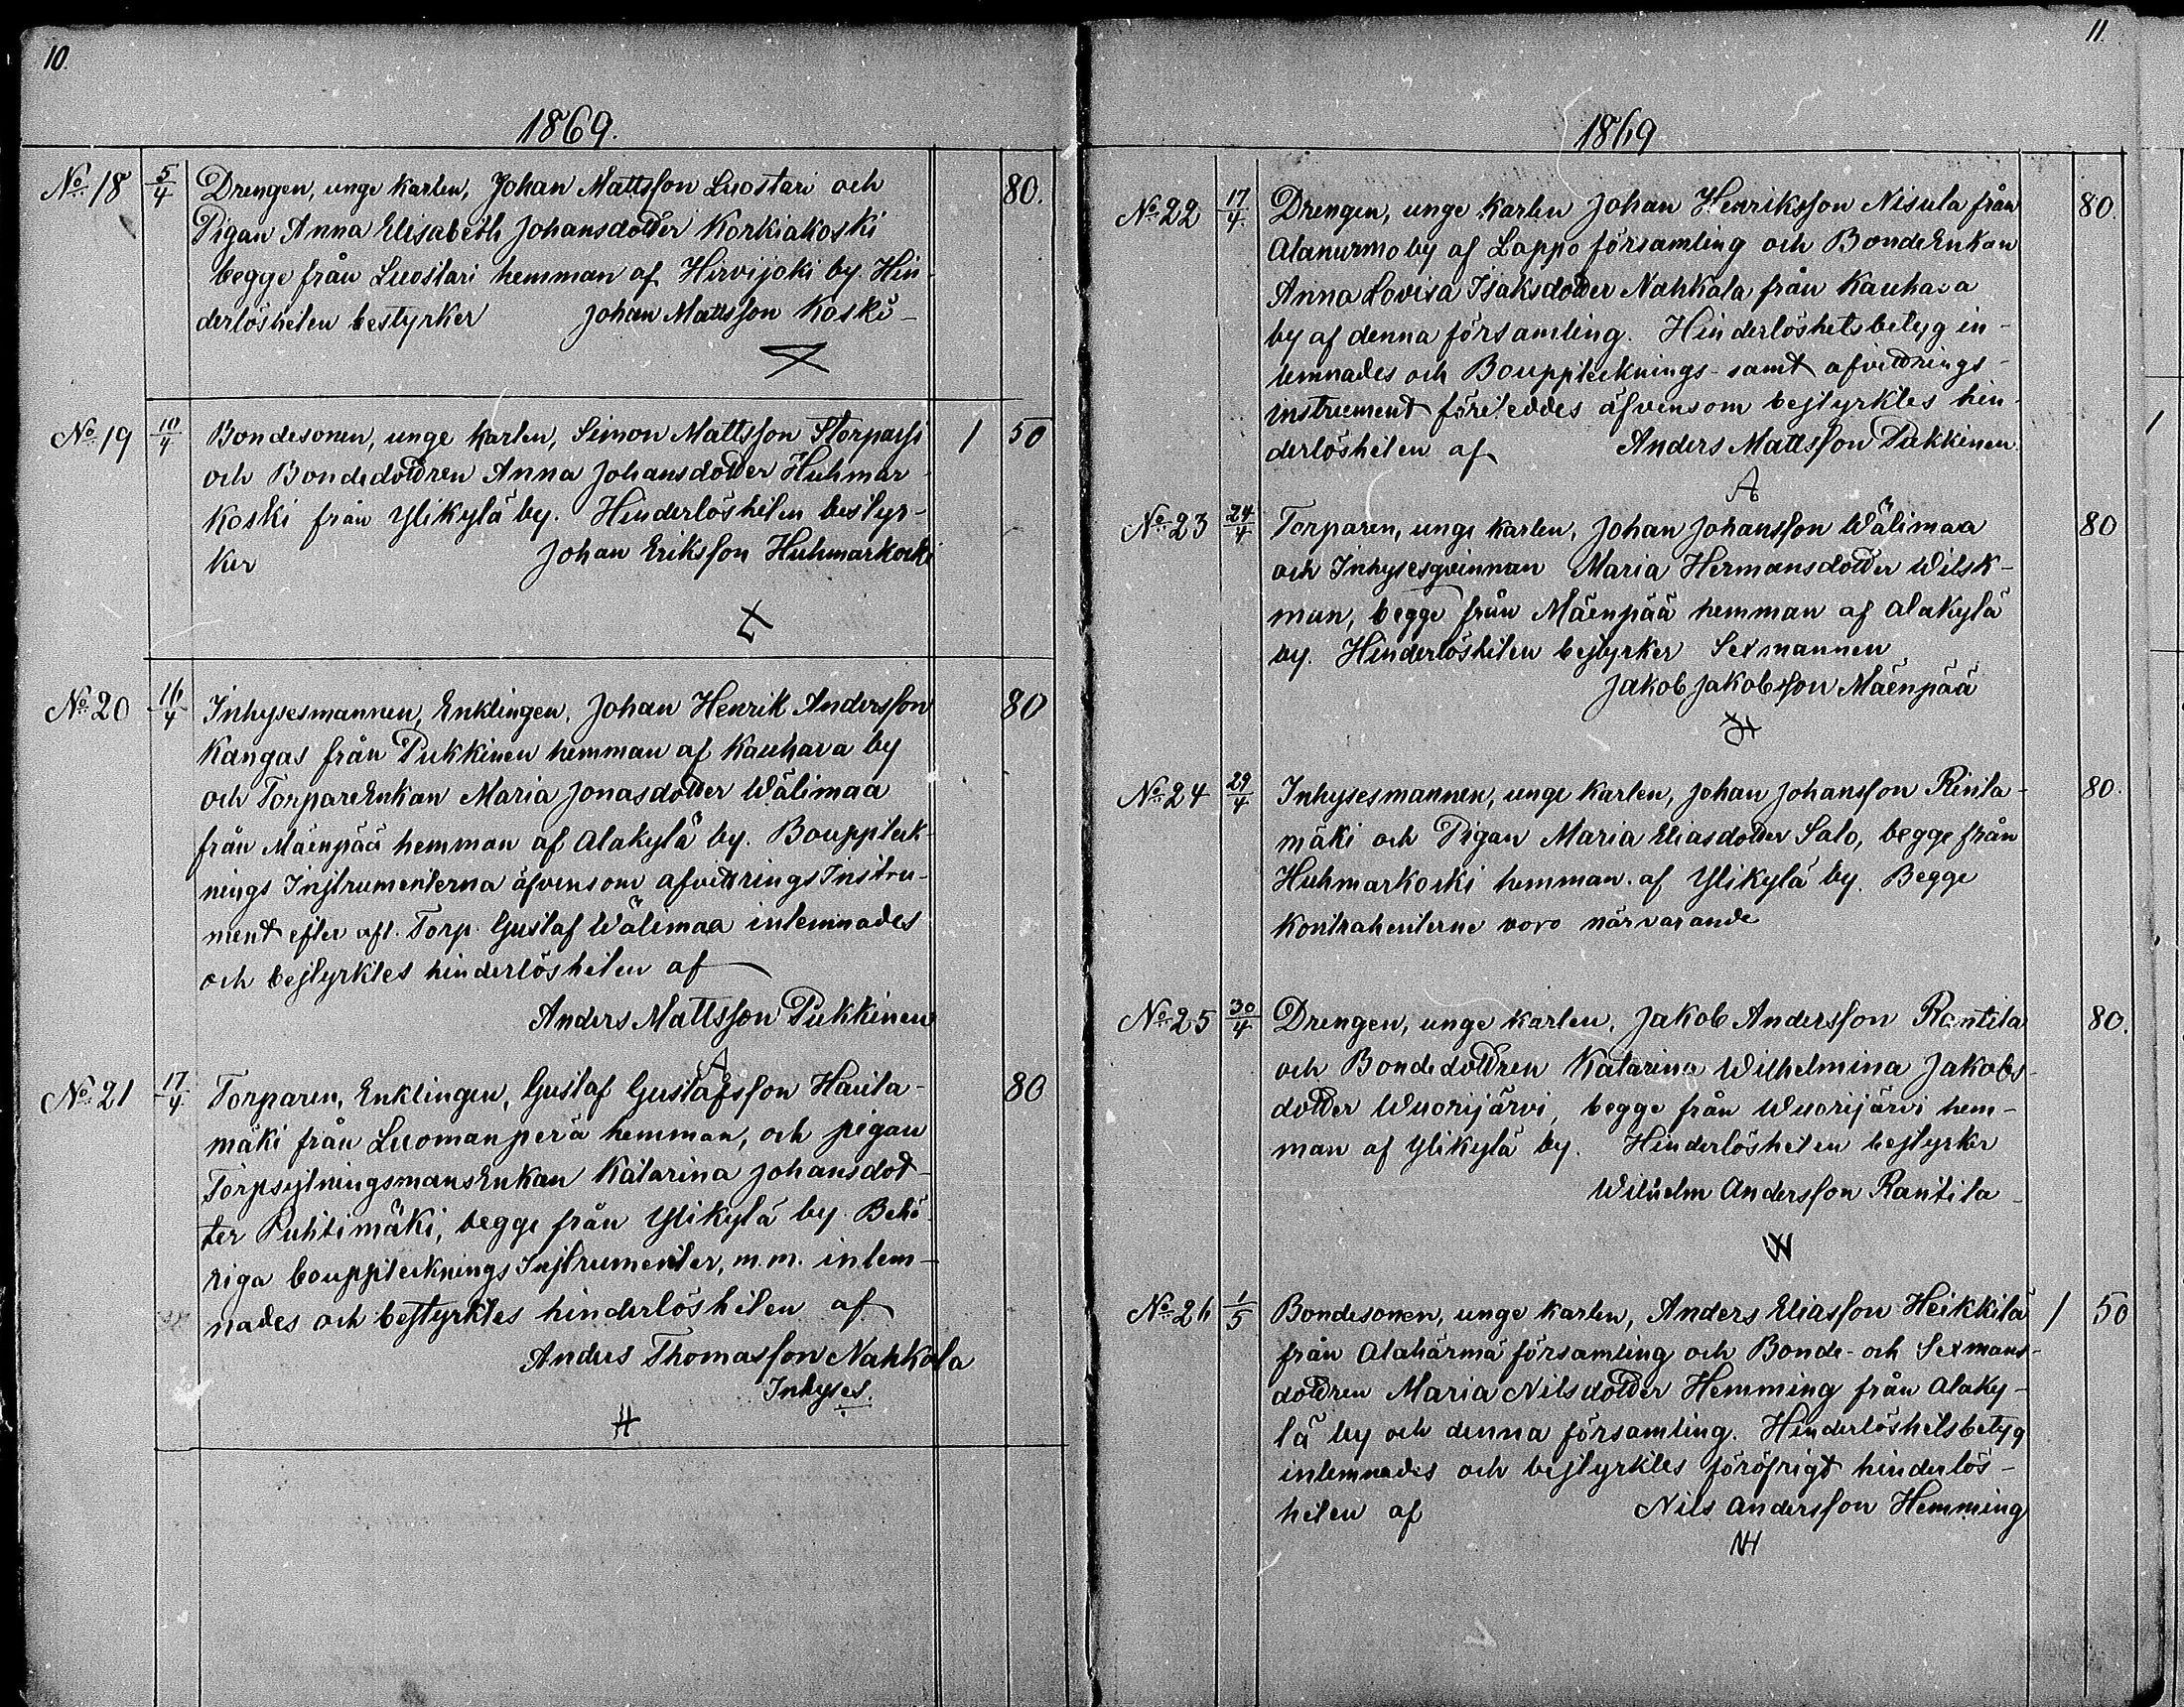 10.
1869.
No 18 5/4 Drengen, unge karlen, Johan Mattsson Luostari och 80.
Pigan Anna Elisabeth Johansdotter Korkiakoski
begge från Luostari hemman af Hirvijoki by. Hin-
derlösheten bestyrker Johan Mattsson Koski
No 19 10/4 Bondesonen, unge karlen, Simon Mattsson Storpassi 1 50
och Bondedottren Anna Johansdotter Huhmar-
koski från Ylikylä by. Hinderlösheten bestyr-
ker Johan Eriksson Huhmarkoski
No 20 16/4 Inhysesmannen, Enklingen, Johan Henrik Andersson 80
Kangas från Pukkinen hemman af Kauhava by
och TorpareEnkan Maria Jonasdotter Wälimaa
från Mäenpää hemman af Alakylä by. Boupptek-
nings Instrumenterna äfvensom afvittrings Instru-
ment efter afl. Torp. Gustaf Wälimaa inlemnades
och bestyrktes hinderlösheten af
Anders Mattsson Pukkinen
A
No 21 17/4 Torparen, Enklingen, Gustaf Gustafsson Hauta- 80
mäki från Luomanperä hemman, och pigan
TorpsytningsmansEnkan Katarina Johansdot-
ter Puhtimäki, begge från Ylikylä by. Behö-
riga bouppteknings Instrumenter, m.m. inlem-
nades och bestyrktes hinderlösheten af
Anders Thomasson Nahkola
Inhyses.
H
11.
1869
No 22 17/4. Drengen, unge karlen Johan Henriksson Nisula från 80.
Alanurmo by af Lappo församling och BondeEnkan
Anna Lovisa Isaksdotter Nahkala från Kauhava
by af denna församling. Hinderlöshetsbetyg in-
lemnades och Bouppteknings- samt afvittrings-
instrument företeddes äfvensom bestyrktes hin-
derlösheten af Anders Mattsson Pukkinen.
A
No 23 24/4 Torparen, unge karlen, Johan Johansson Wälimaa 80
och Inhysesqvinnan Maria Hermansdotter Wilsk-
man, begge från Mäenpää hemman af Alakylä
by. Hinderlösheten bestyrker Sexmannen
Jakob Jakobsson Mäenpää
No 24 29/4 Inhysesmannen, unge karlen, Johan Johansson Rinta- 80.
mäki och Pigan Maria Eliasdotter Salo, begge från
Huhmarkoski hemman af Ylikylä by. Begge
Kontrahenterne voro närvarande
No 25 30/4 Drengen, unge karlen, Jakob Andersson Rantila 80.
och Bondedottren Katarina Wilhelmina Jakobs-
dotter Wuorijärvi, begge från Wuorijärvi hem-
man af Ylikylä by. Hinderlösheten bestyrker
Wilhelm Andersson Rantila
W
No 26 1/5 Bondesonen, unge karlen, Anders Eliasson Heikkilä 1 50
från Alahärmä församling och Bonde- och Sexmans-
dottren Maria Nilsdotter Hemming från Alaky-
lä by och denna församling. Hinderlöshetsbetyg
inlemnades och bestyrktes föröfrigt hinderlös-
heten af Nils Andersson Hemming
NH